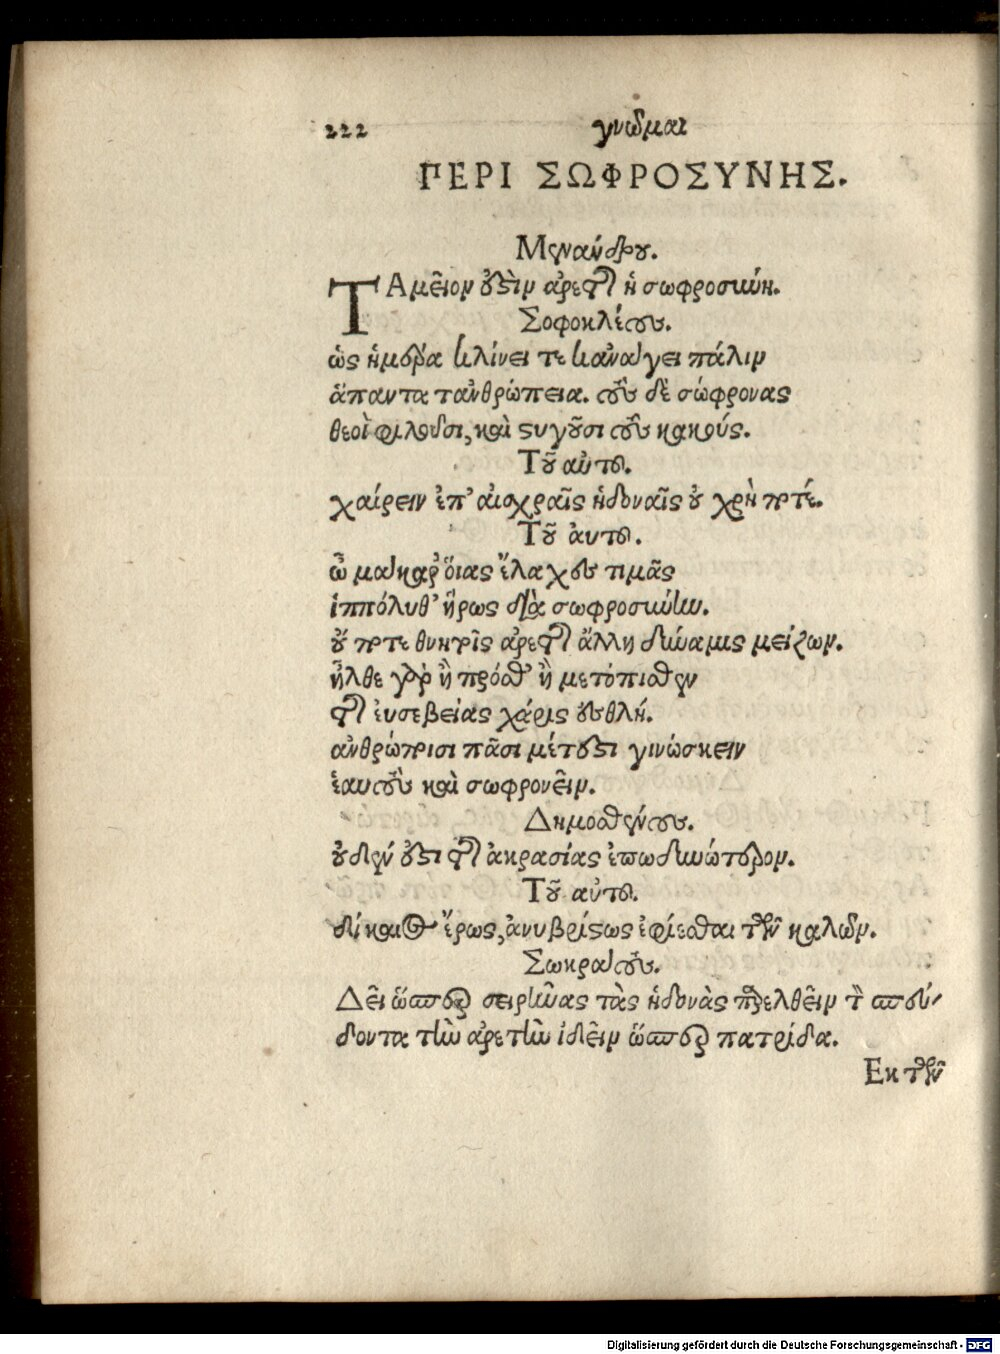 222 γνῶμαι
ΠΕΡΙ ΣΩΦΡΟΣΥΝΗΣ.
Μενάνδρου.
ΤΑμεῖον ἐστὶν ἀρετῆς ἡ σωφροσύνη.
Σοφοκλέους.
ὡς ἡμέρα κλίνει τε κἀνάγει πάλιν
ἅπαντα τἀνθρώπεια. τοὺς δὲ σώφρονας
θεοὶ φιλοῦσι, καὶ στυγοῦσι τοὺς κακούς.
Τοῦ αὐτοῦ.
χαίρειν ἐπ' αἰσχραῖς ἡδοναῖς οὐ χρὴ ποτέ.
Τοῦ ἀυτοῦ.
ὦ μάκαρ ὅιας ἔλαχες τιμᾶς
ἱππόλυθ' ἥρως διὰ σωφροσύνην.
οὔ ποτε θνητοῖς ἀρετῆς ἄλλη δύναμις μείζων.
ἦλθε γὰρ ἢ πρόσθ' ἢ μετόπισθεν
τῆς ἐυσεβείας χάρις ἐσθλή.
ἀνθρώποισι πᾶσι μέτεστι γινώσκειν
ἑαυτοὺς καὶ σωφρονεῖν.
Δημοσθένους.
οὐδὲν ἐστι τῆς ἀκρασίας ἐπωδυνώτερον.
Τοῦ αὐτοῦ.
δίκαιος ἔρως, ἀνυβρίστως ἐφίεσθαι τῶν καλῶν.
Σωκράτους.
Δεῖ ὥσπερ σειρῆνας τὰς ἡδονὰς παρελθεῖν τὸν σπεύ-
δοντα τὴν ἀρετὴν ἰδεῖν ὥσπερ πατρίδα.
Εκ τῶν
Digitalisierung gefördert durch die Deutsche Forschungsgemeinschaft - DFG